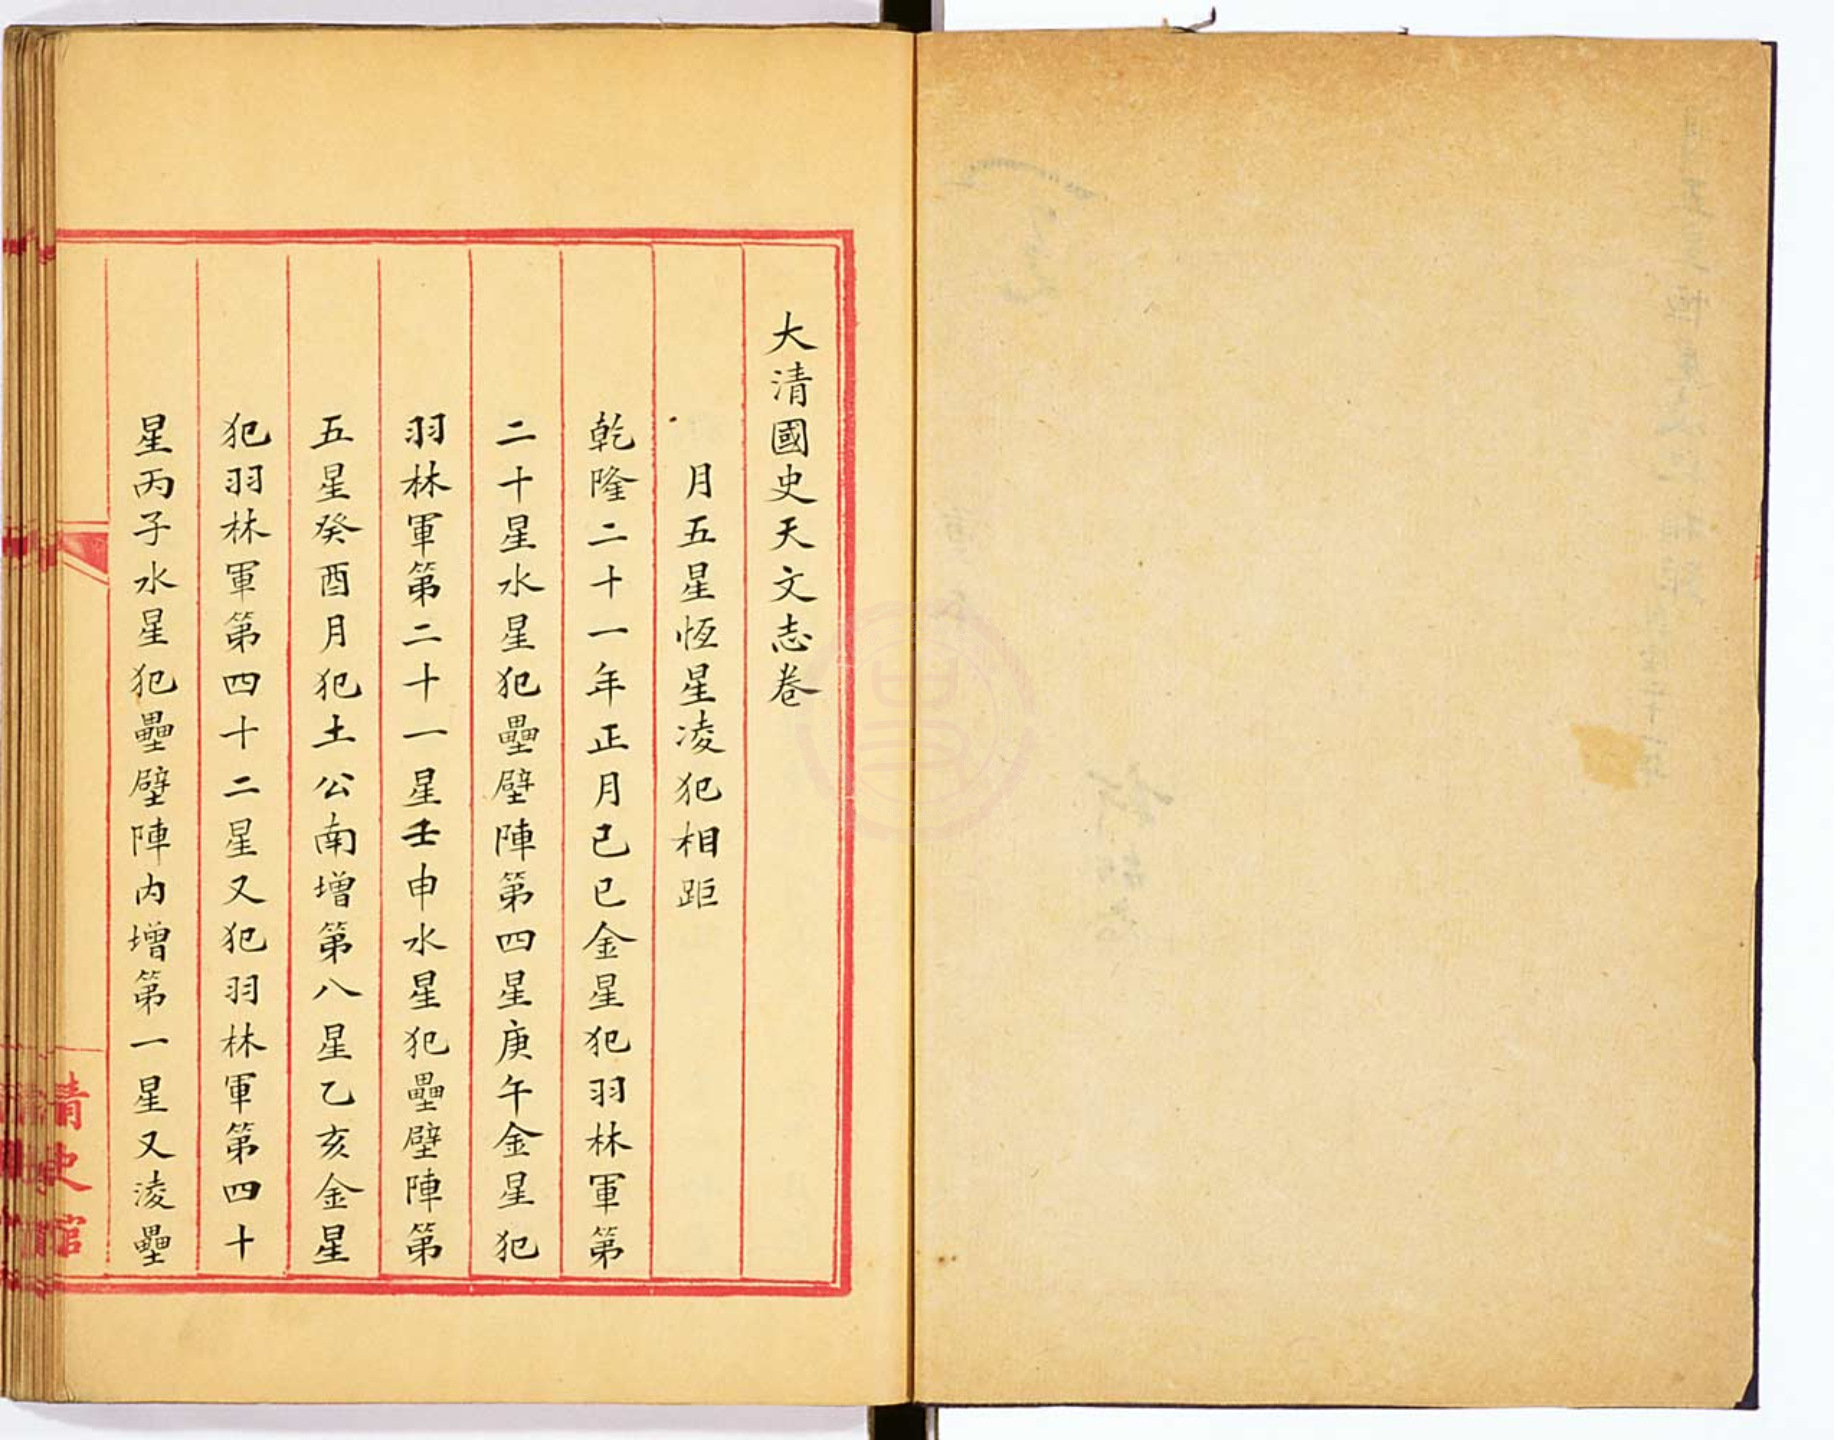 大清國史天文志卷
月五星恆星凌犯相距
乾隆二十一年正月己巳金星犯羽林軍第
二十星水星犯壘壁陣第四星庚午金星犯
羽林軍第二十一星壬申水星犯壘壁陣第
五星癸酉月犯土公南增第八星乙亥金星
犯羽林軍第四十二星又犯羽林軍第四十
星丙子水星犯壘壁陣內增第一星又淩壘
清史館